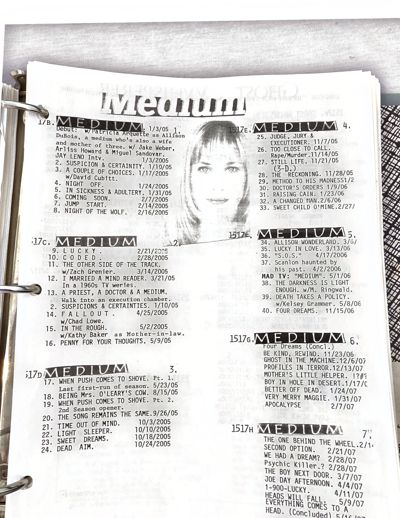 Medium
17B. MEDIUM 1/3/05 1.
Debut. w/Patricia Arquette as Allison
DuBois, a medium who's also a wife
and mother of three. w/ Jake Weber,
Arliss Howard & Miguel Sandoval.
JAY LENO Intv. 1/3/2005
2. SUSPICION & CERTAINTY. 1/10/05
3. A COUPLE OF CHOICES. 1/17/05
w/David Cubitt.
4. NIGHT OFF. 1/24/2005
5. IN SICKNESS & ADULTERY. 1/31/05
6. COMING SOON. 2/7/2005
7. JUMP START. 2/14/2005
8. NIGHT OF THE WOLF. 2/16/2005
517C. MEDIUM 2.
9. LUCKY. 2/21/2005
10. CODED. 2/28/2005
11. THE OTHER SIDE OF THE TRACK.
w/Zach Grenier. 3/14/2005
12. I MARRIED A MIND READER. 3/21/05
In a 1960s TV series.
13. A PRIEST, A DOCTOR & A MEDIUM.
Walk into an execution chamber.
2. SUSPICIONS & CERTAINTIES. 1/10/05
14. FALLOUT. 4/25/2005
w/Chad Lowe.
15. IN THE ROUGH. 5/2/2005
w/Kathy Baker as Mother-in-law.
16. PENNY FOR YOUR THOUGHTS, 5/9/05
517D MEDIUM 3.
17. WHEN PUSH COMES TO SHOVE. Pt. 1.
Last first-run of season. 5/23/05
18. BEING Mrs. O'LEARY'S COW. 8/15/05
19. WHEN PUSH COMES TO SHOVE. Pt. 2.
2nd Season opener.
20. THE SONG REMAINS THE SAME. 9/26/05
21. TIME OUT OF MIND. 10/3/2005
22. LIGHT SLEEPER. 10/10/2005
23. SWEET DREAMS. 10/18/2005
24. DEAD AIM. 10/24/2005
1517E. MEDIUM 4.
25. JUDGE, JURY &
EXECUTIONER. 11/7/05
26. TOO CLOSE TO CALL.
Rape/Murder. 11/14/05
27. STILL LIFE. 11/21/05
(3-D.)
28. THE RECKONING. 11/28/05
29. METHOD TO HIS MADNESS/2
30. DOCTOR'S ORDERS 1/9/06
31. RAISING CAIN. 1/23/06
32. A CHANGED MAN. 2/6/06
33. SWEET CHILD O'MINE. 2/27/
1517F. MEDIUM 5.
34. ALLISON WONDERLAND. 3/6/
35. LUCKY IN LOVE. 3/13/06
36. "S.O.S." 4/17/2006
37. Scanlon haunted by
his past. 4/2/2006
MAD TV: "MEDIUM". 5/11/06
38. THE DARKNESS IS LIGHT
ENOUGH. w/M. Ringwald.
39. DEATH TAKES A POLICY.
w/Kelsey Grammer. 5/8/06
40. FOUR DREAMS. 11/15/06
1517G. MEDIUM 6.
Four Dreams (Concl.)
BE KIND, REWIND. 11/23/06
GHOST IN THE MACHINE 12/6/07
PROFILES IN TERROR. 12/13/07
MOTHER'S LITTLE HELPER.
BOY IN HOLE IN DESERT. 1/17/
BETTER OFF DEAD. 1/24/07
VERY MERRY MAGGIE. 1/31/07
APOCALYPSE 2/7/07
1517H MEDIUM 7.
THE ONE BEHIND THE WHEEL. 2/14
SECOND OPTION. 2/21/07
WE HAD A DREAM? 2/28/07
Psychic Killer.? 2/28/07
THE BOY NEXT DOOR. 3/7/07
JOE DAY AFTERNOON. 4/4/07
1-900-LUCKY. 4/11/07
HEADS WILL FALL. 5/9/07
EVERYTHING COMES TO A
HEAD. (Concluded)